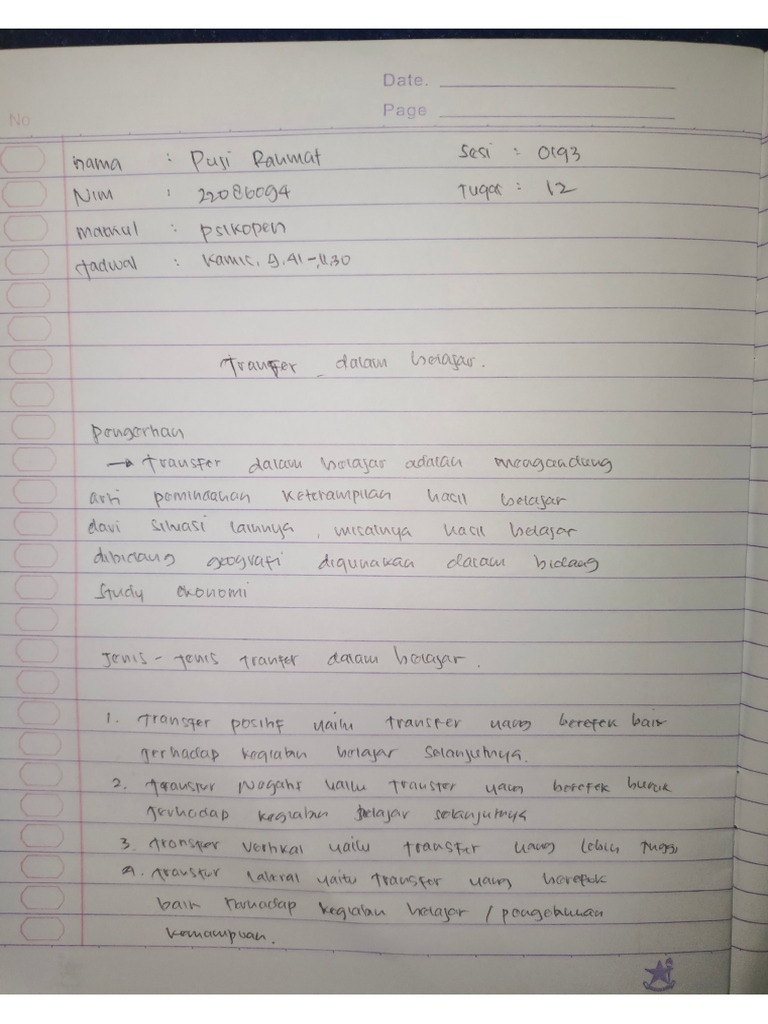 Date.
Page
No
nama : Puji Rahmat Sesi : 0193
NIM : 22086094 Tugas : 12
matkul : psikopen
Jadwal : Kamis, 9.41-11.30
Transfer dalam belajar.
pengertian
→ Transfer dalam belajar adalah mengandung
arti pemindahan keterampilan hasil belajar
dari situasi lainnya, misalnya hasil belajar
dibidang geografi digunakan dalam bidang
study ekonomi
Jenis - jenis tranfer dalam belajar.
1. Transfer positif yaitu transfer yang berefek baik
terhadap kegiatan belajar selanjutnya.
2. Transfer Negatif yaitu transfer yang berefek buruk
terhadap kegiatan belajar selanjutnya
3. Transfer vertikal yaitu transfer yang lebih tinggi
4. Transfer lateral yaitu transfer yang berefek
baik terhadap kegiatan belajar / pengetahuan
kemampuan.